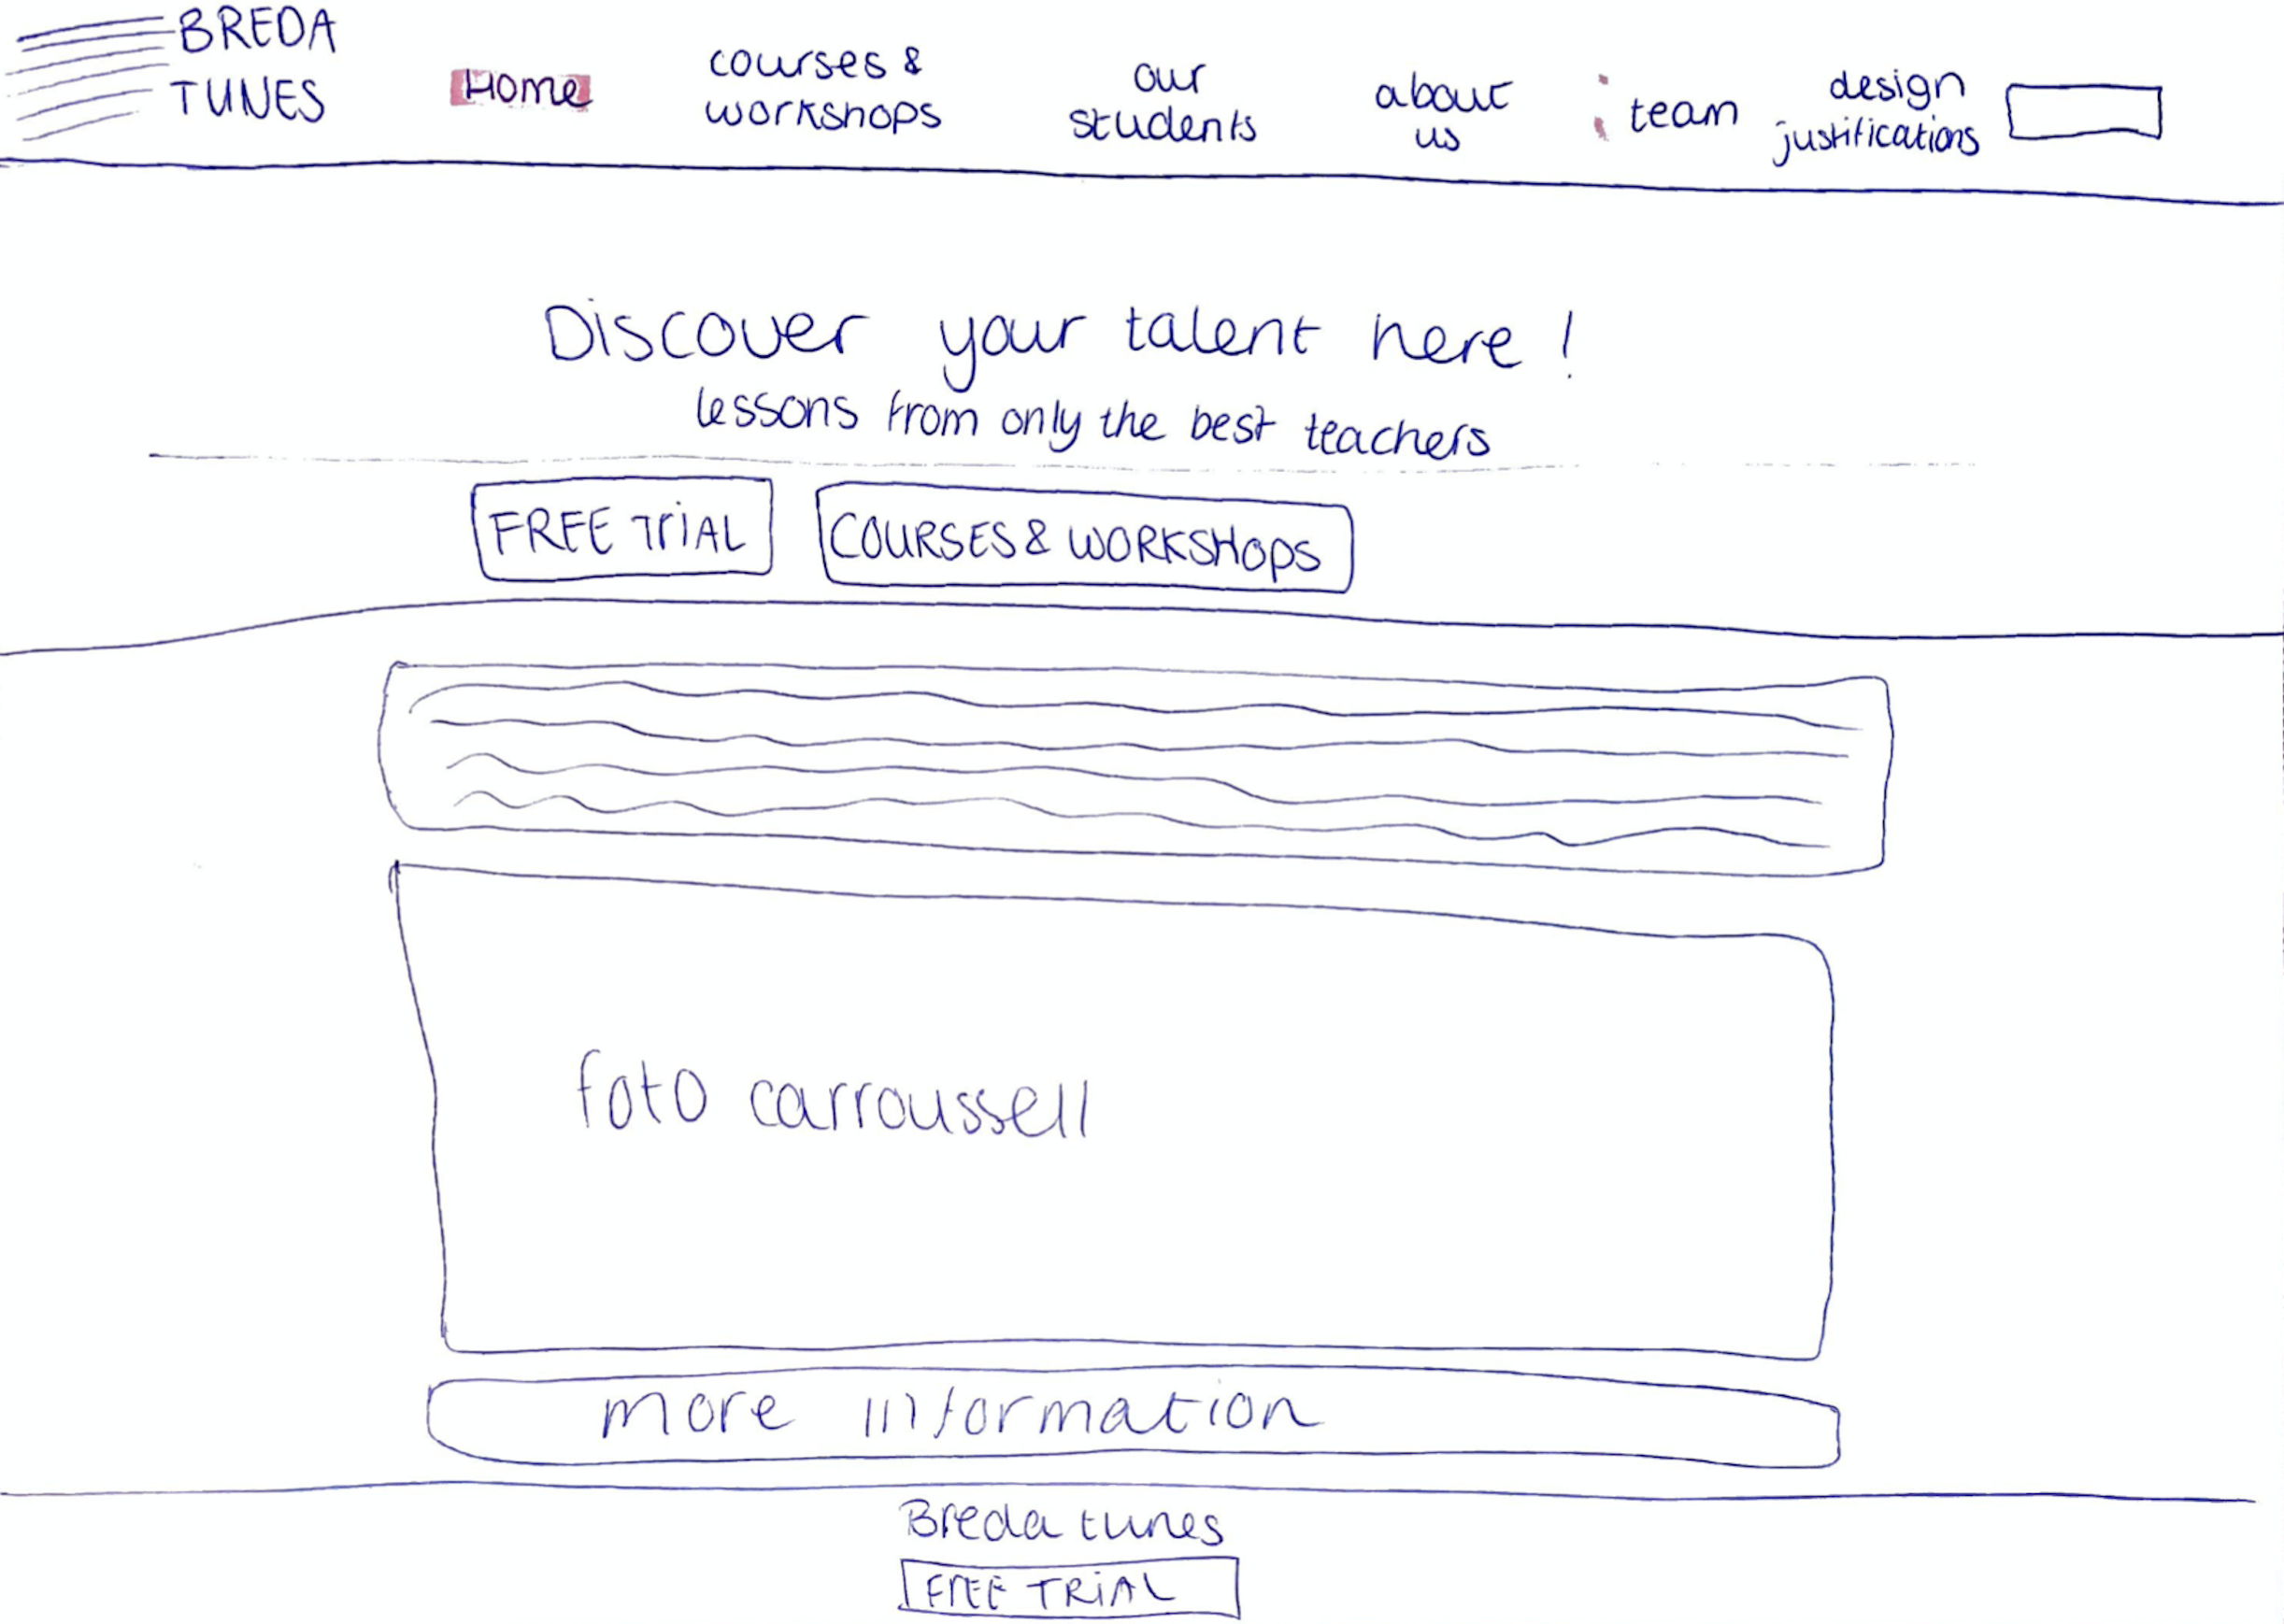 BREDA
TUNES
Home
courses &
workshops
our
students
about
us
team
design
justifications
Discover your talent here !
lessons from only the best teachers
FREE TRiAL
COURSES & WORKSHOPS
foto carroussell
more information
Breda tunes
FREE TRiAL